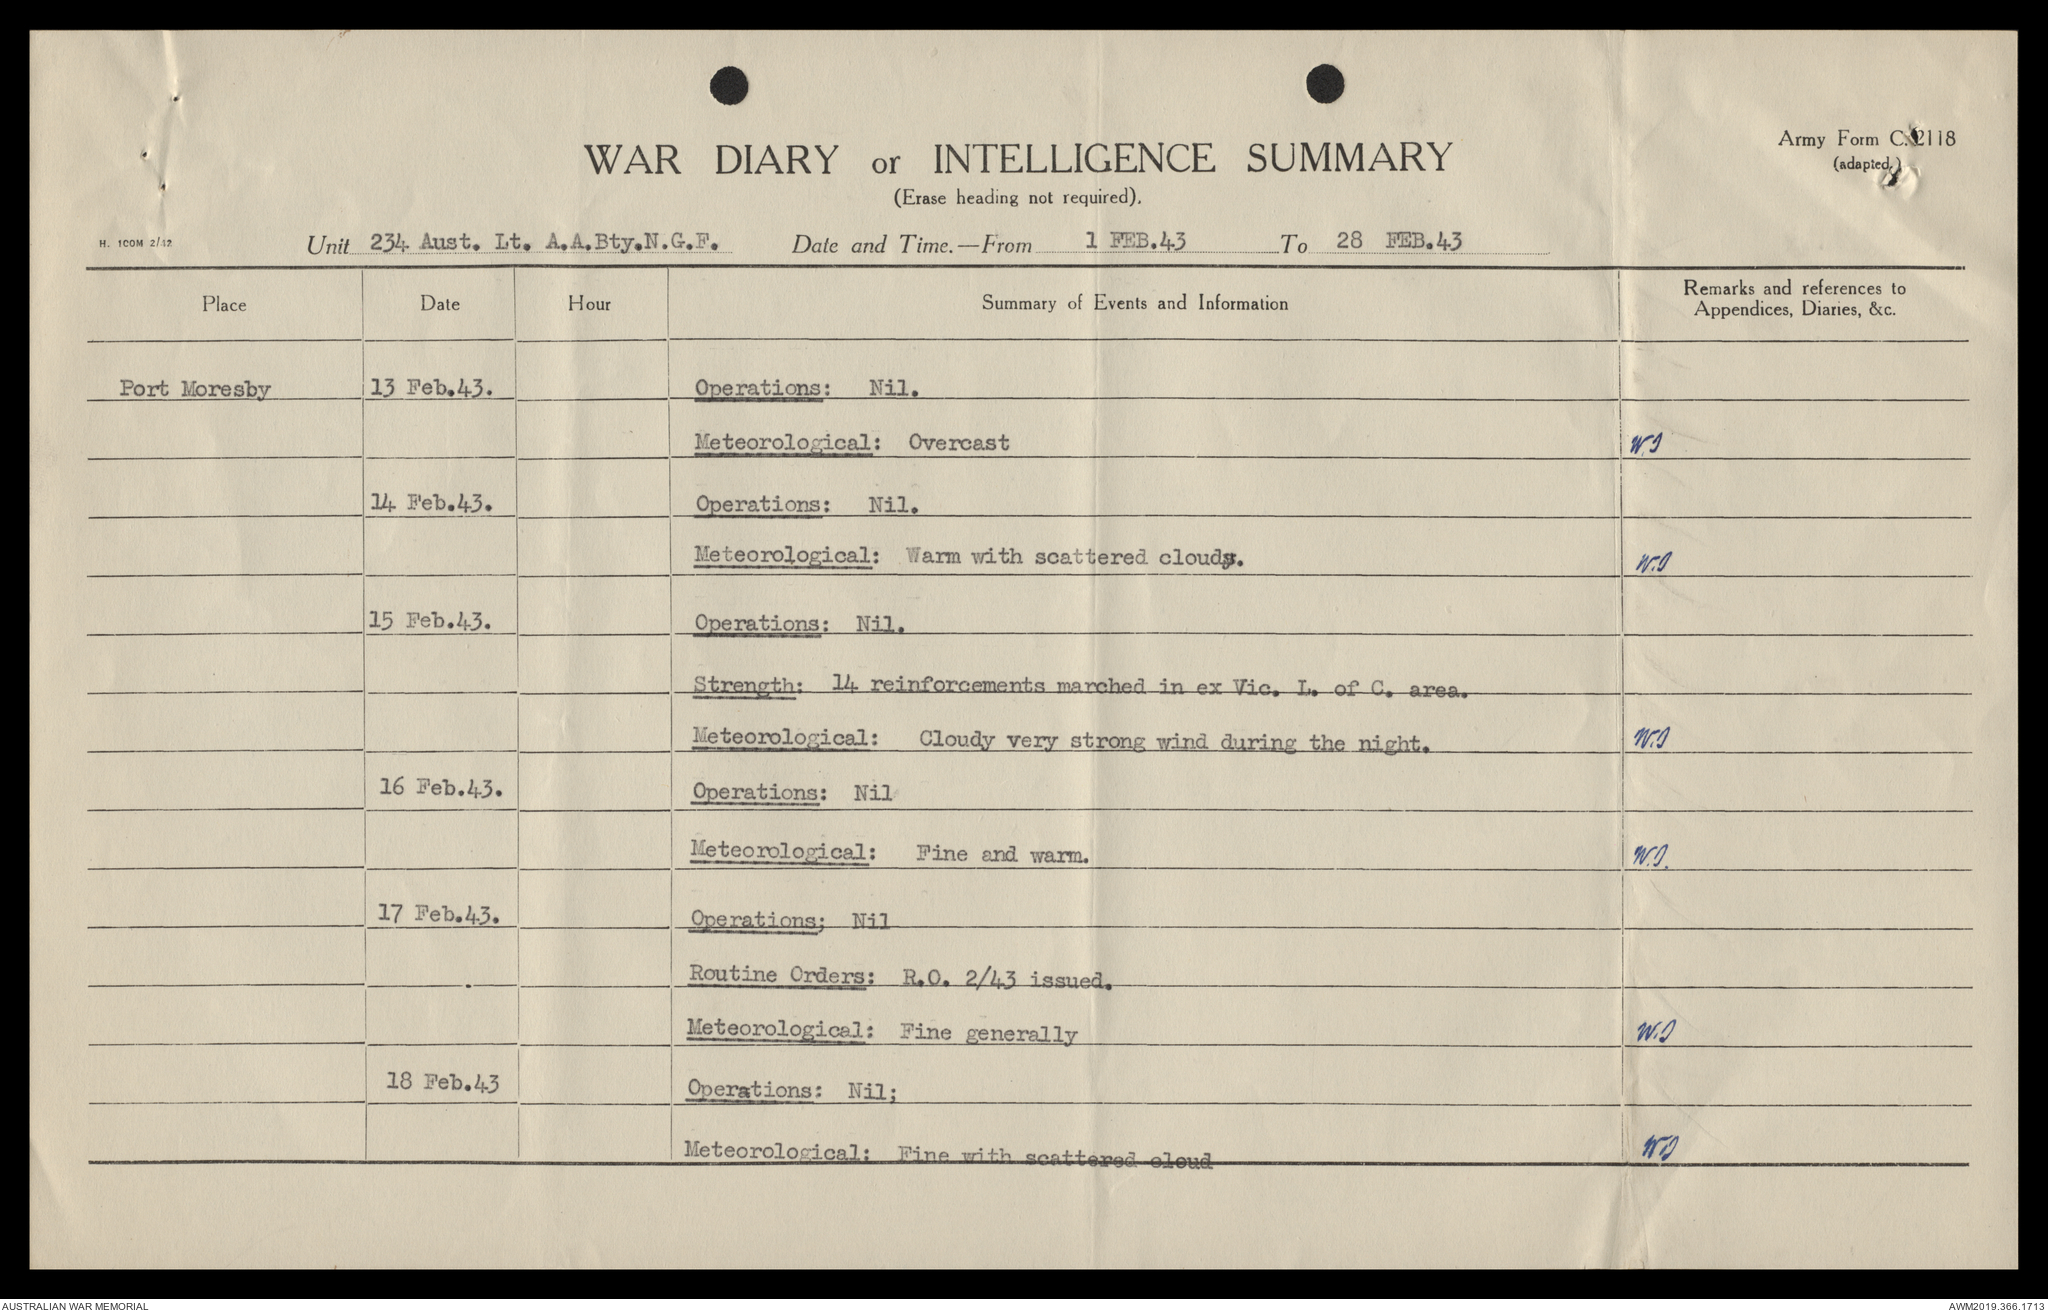 Army Form C.2118
(adapted.)
WAR DIARY or INTELLIGENCE SUMMARY
(Erase heading not required).
H. 100M 2/42
Unit 234 Aust. Lt. A.A.Bty.N.G.F. Date and Time.—From 1 FEB.43 To 28 FEB.43
Place Date Hour Summary of Events and Information Remarks and references to
Appendices, Diaries, &c.
Port Moresby 13 Feb.43. Operations: Nil.
Meteorological: Overcast
14 Feb.43. Operations: Nil.
Meteorological: Warm with scattered clouds.
15 Feb.43. Operations: Nil.
Strength: 14 reinforcements marched in ex Vic. L. of C. area.
Meteorological: Cloudy very strong wind during the night.
16 Feb.43. Operations: Nil
Meteorological: Fine and warm.
17 Feb.43. Operations; Nil
Routine Orders: R.O. 2/43 issued.
Meteorological: Fine generally
18 Feb.43 Operations: Nil;
Meteorological: Fine with scattered cloud
AUSTRALIAN WAR MEMORIAL AWM2019.366.1713